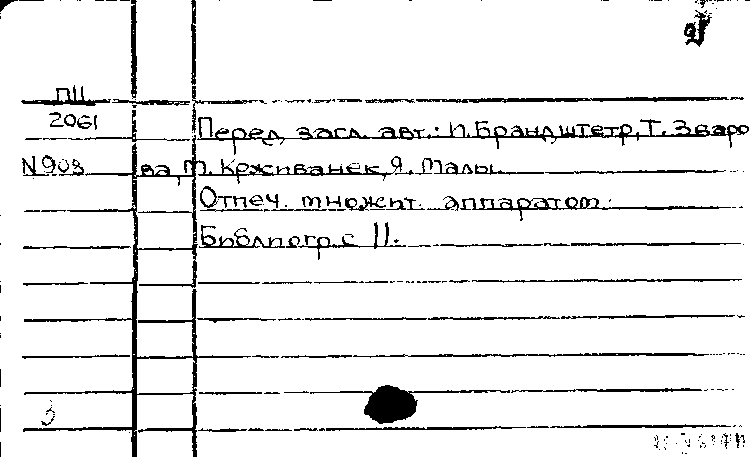 П11
2061
Перед загл. авт.: И.Брандштетр,Т.Зваро
N908 ва,М.Крживанек,Я.Малы.
Отпеч. множит. аппаратом.
Библиогр.с 11.
3